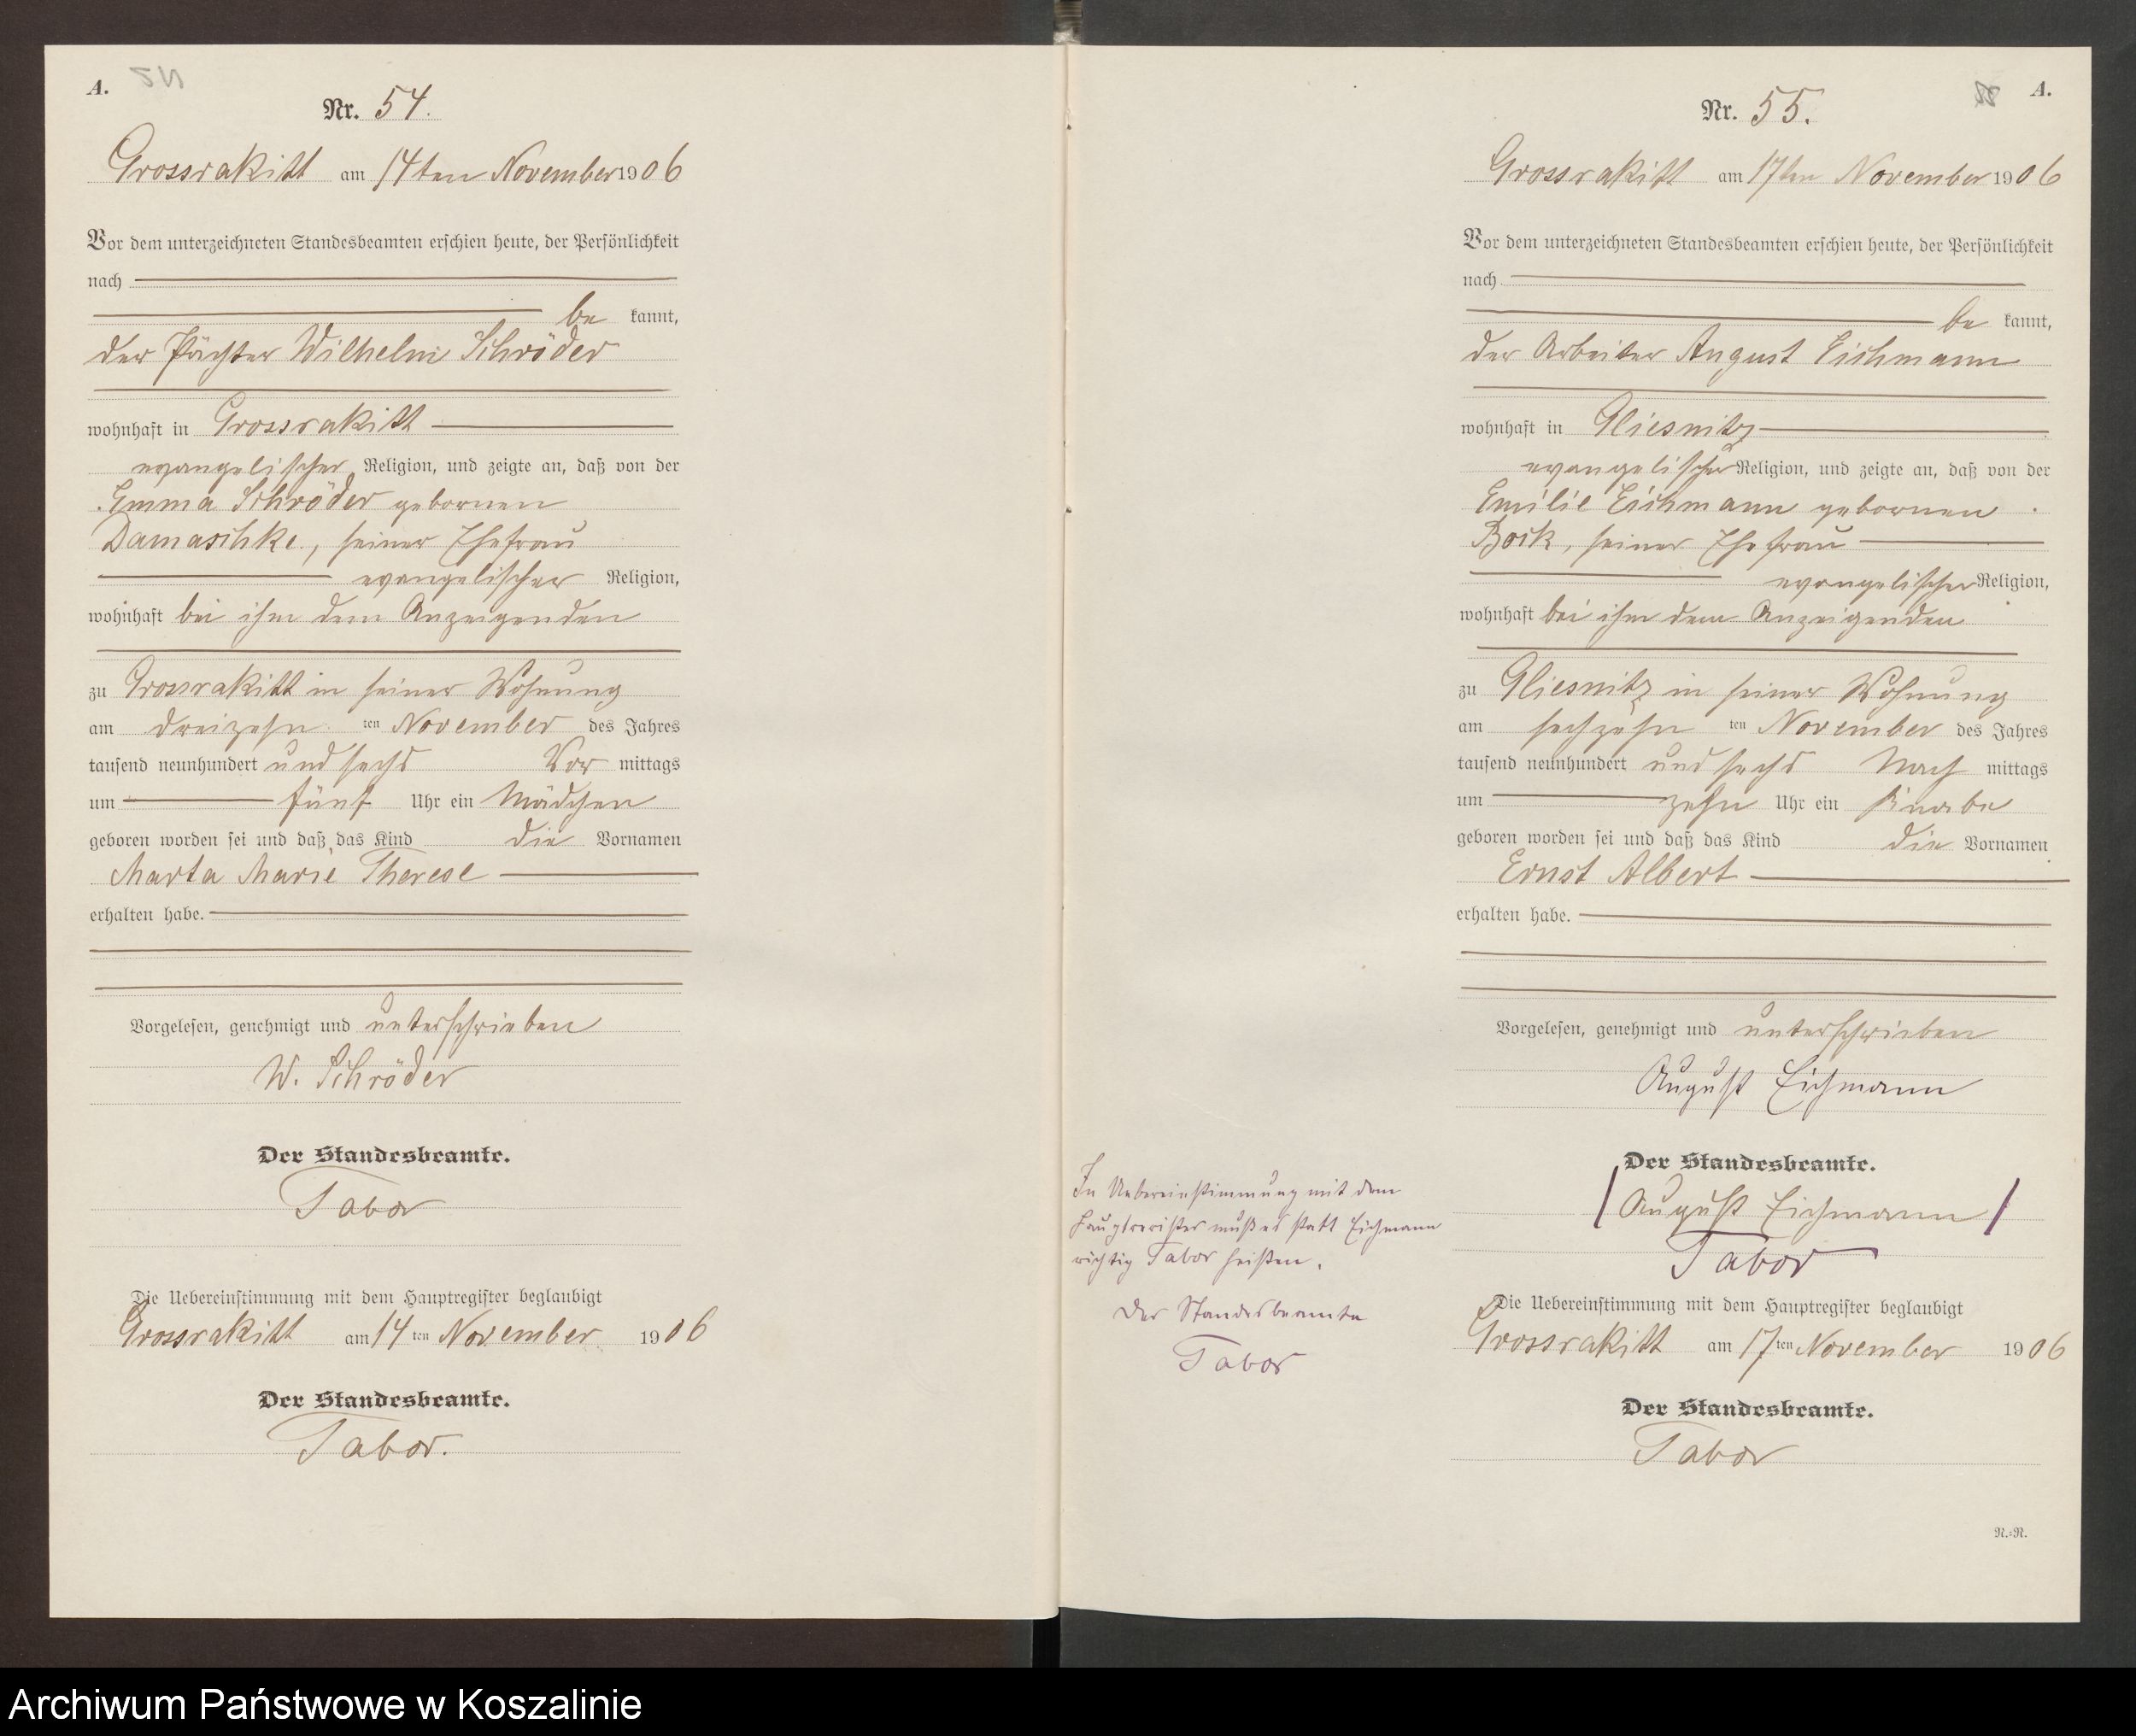 A.
54
Nr. 54.
Grossrakitt am 14ten November 1906
Vor dem unterzeichneten Standesbeamten erschien heute, der Persönlichkeit
nach
be kannt,
der Pächter Wilhelm Schröder
wohnhaft in Grossrakitt
evangelischer Religion, und zeigte an, daß von der
Emma Schröder gebornen
Damaschke, seiner Ehefrau
evangelischer Religion,
wohnhaft bei ihm dem Anzeigenden
zu Grossrakitt in seiner Wohnung
am dreizehn ten November des Jahres
tausend neunhundert und sechs Vor mittags
um fünf Uhr ein Mädchen
geboren worden sei und daß das Kind die Vornamen
Marta Marie Therese
erhalten habe.
Vorgelesen, genehmigt und unterschrieben
W. Schröder
Der Standesbeamte.
Tabor
Die Uebereinstimmung mit dem Hauptregister beglaubigt
Grossrakitt am 14 ten November 1906
Der Standesbeamte.
Tabor.
A.
Nr. 55.
Grossrakitt am 17ten November 1906
Vor dem unterzeichneten Standesbeamten erschien heute, der Persönlichkeit
nach
be kannt,
der Arbeiter August Eichmann
wohnhaft in Gliesnitz
evangelischer Religion, und zeigte an, daß von der
Emilie Eichmann gebornen
Bock, seiner Ehefrau
evangelischer Religion,
wohnhaft bei ihm dem Anzeigenden
zu Gliesnitz in seiner Wohnung
am sechzehn ten November des Jahres
tausend neunhundert und sechs Nach mittags
um zehn Uhr ein Knabe
geboren worden sei und daß das Kind die Vornamen
Ernst Albert
erhalten habe.
Vorgelesen, genehmigt und unterschrieben
August Eichmann
Der Standesbeamte.
(August Eichmann)
Tabor
In Uebereinstimmung mit dem
Hauptregister muß es statt Eichmann
richtig Tabor heißen.
Der Standesbeamte
Tabor
Die Uebereinstimmung mit dem Hauptregister beglaubigt
Grossrakitt am 17 ten November 1906
Der Standesbeamte.
Tabor
N.=R.
Archiwum Państwowe w Koszalinie